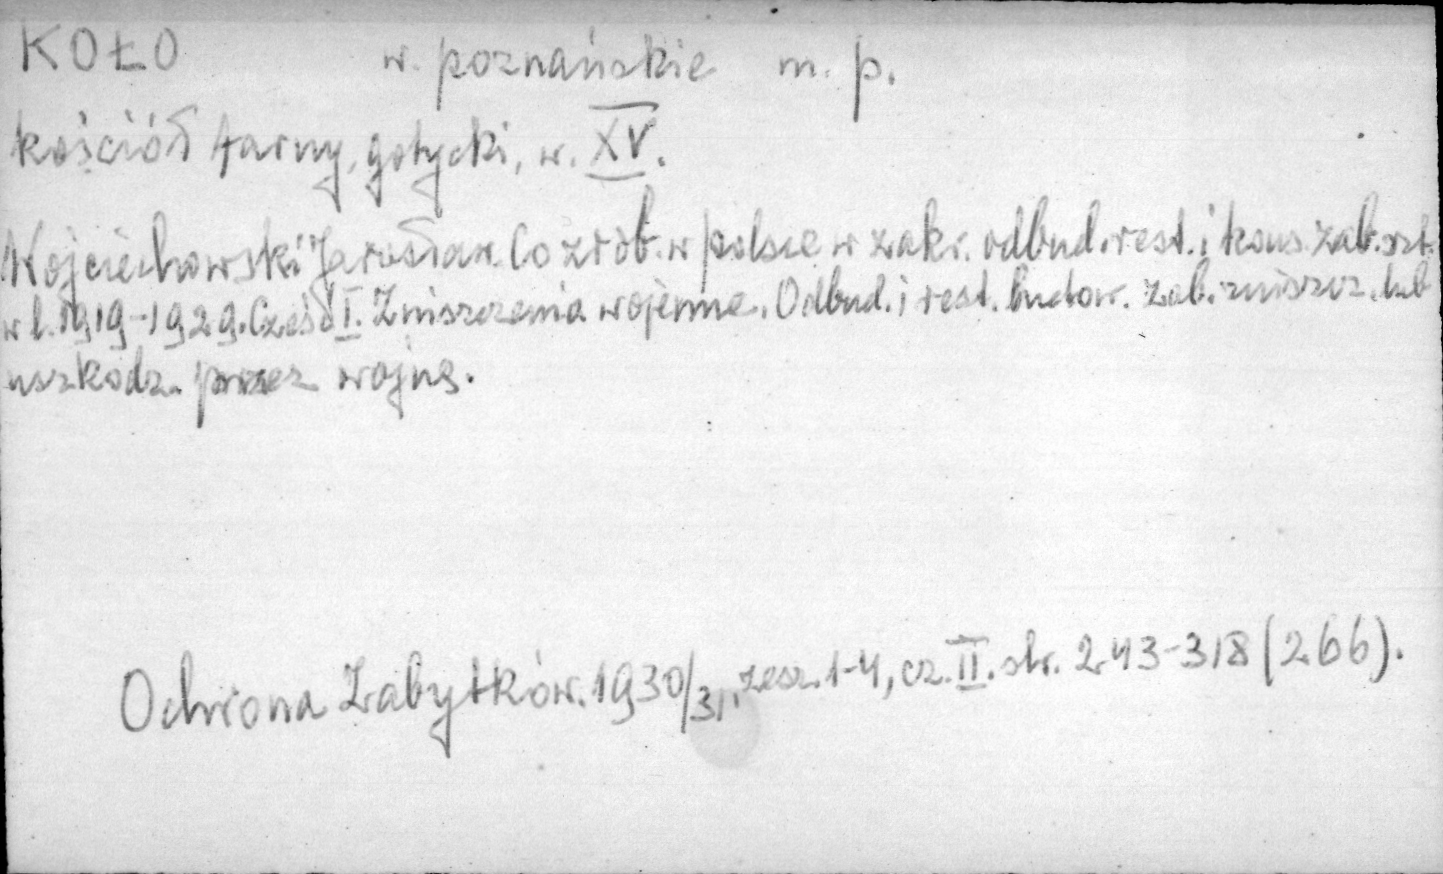 KOŁO w. poznańskie m. p.
kościół farny, gotycki, w. XV.
Wojciechowski Jarosław. Co zrob. w polsce w zakr. odbud. rest. i kons. zab. szt.
w l. 1919-1929. Część I. Zniszczenia wojenne. Odbud. i rest. budow. zab. zniszcz. lub
uszkodz. przez wojnę.
Ochrona Zabytków. 1930/31, zesz. 1-4, cz. II. str. 243-318 (266).